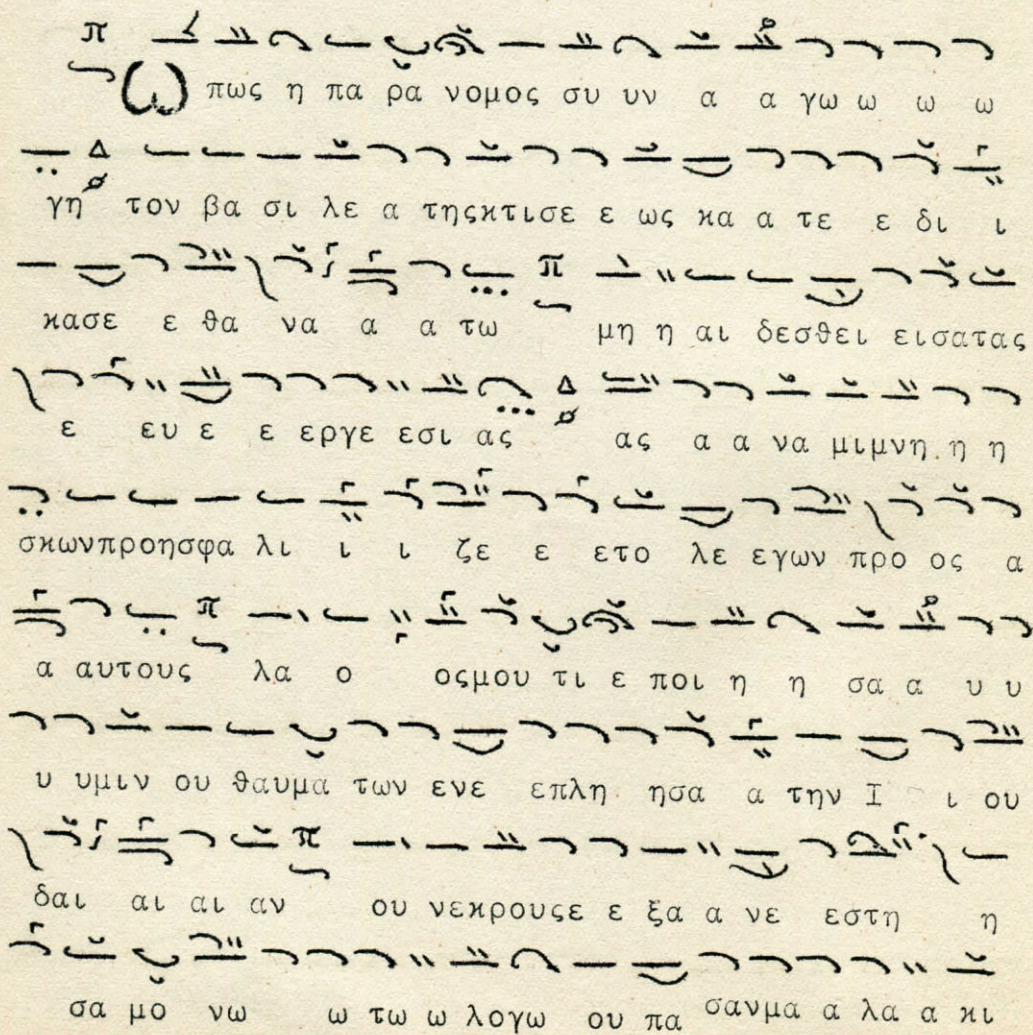 π
Ω πως η πα ρα νομος συ υν α α γω ω ω ω
Δ
γη τον βα σι λε α τηςκτισε ε ως κα α τε ε δι ι
π
κασε ε θα να α α τω μη η αι δεσθει εισατας
Δ
ε ευ ε ε εργε εσι ας ας α α να μιμνη η η
σκωνπροησφα λι ι ι ζε ε ετο λε εγων προ ος α
π
α αυτους λα ο οςμου τι ε ποι η η σα α υ υ
υ υμιν ου θαυμα των ενε επλη ησα α την Ι ι ου
π
δαι αι αι αν ου νεκρουςε ε ξα α νε εστη η
σα μο νω ω τω ω λογω ου πα σανμα α λα α κι